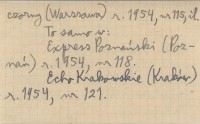 czorny (Warszawa) r. 1954, nr 115, il.
To samo w:
Express Poznański (Poz-
nań) r. 1954, nr 118.
Echo Krakowskie (Kraków)
r. 1954, nr 121.